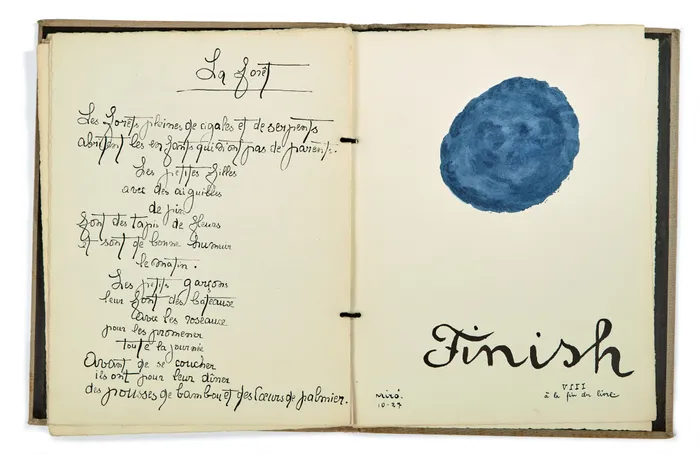 La forêt
Les forêts pleines de cigales et de serpents
abritent les enfants qui n'ont pas de parents.
Les petites filles
avec des aiguilles
de pin
font des tapis de fleurs
et sont de bonne humeur
le matin.
Les petits garçons
leur font des bateaux
avec les roseaux
pour les promener
toute la journée
Avant de se coucher
ils ont pour leur dîner
des pousses de bambou et des Cœurs de palmier.
Finish
Miró.
10-27
VIII
à la fin du livre